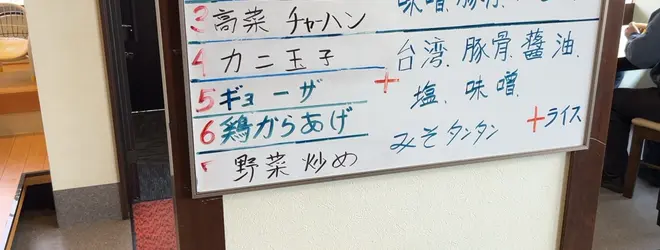 3 高菜 チャーハン
4 カニ玉子
5 ギョーザ
6 鶏からあげ
野菜炒め
味噌、豚骨、
+ 台湾、豚骨、醬油、
塩、味噌、
みそタンタン +ライス